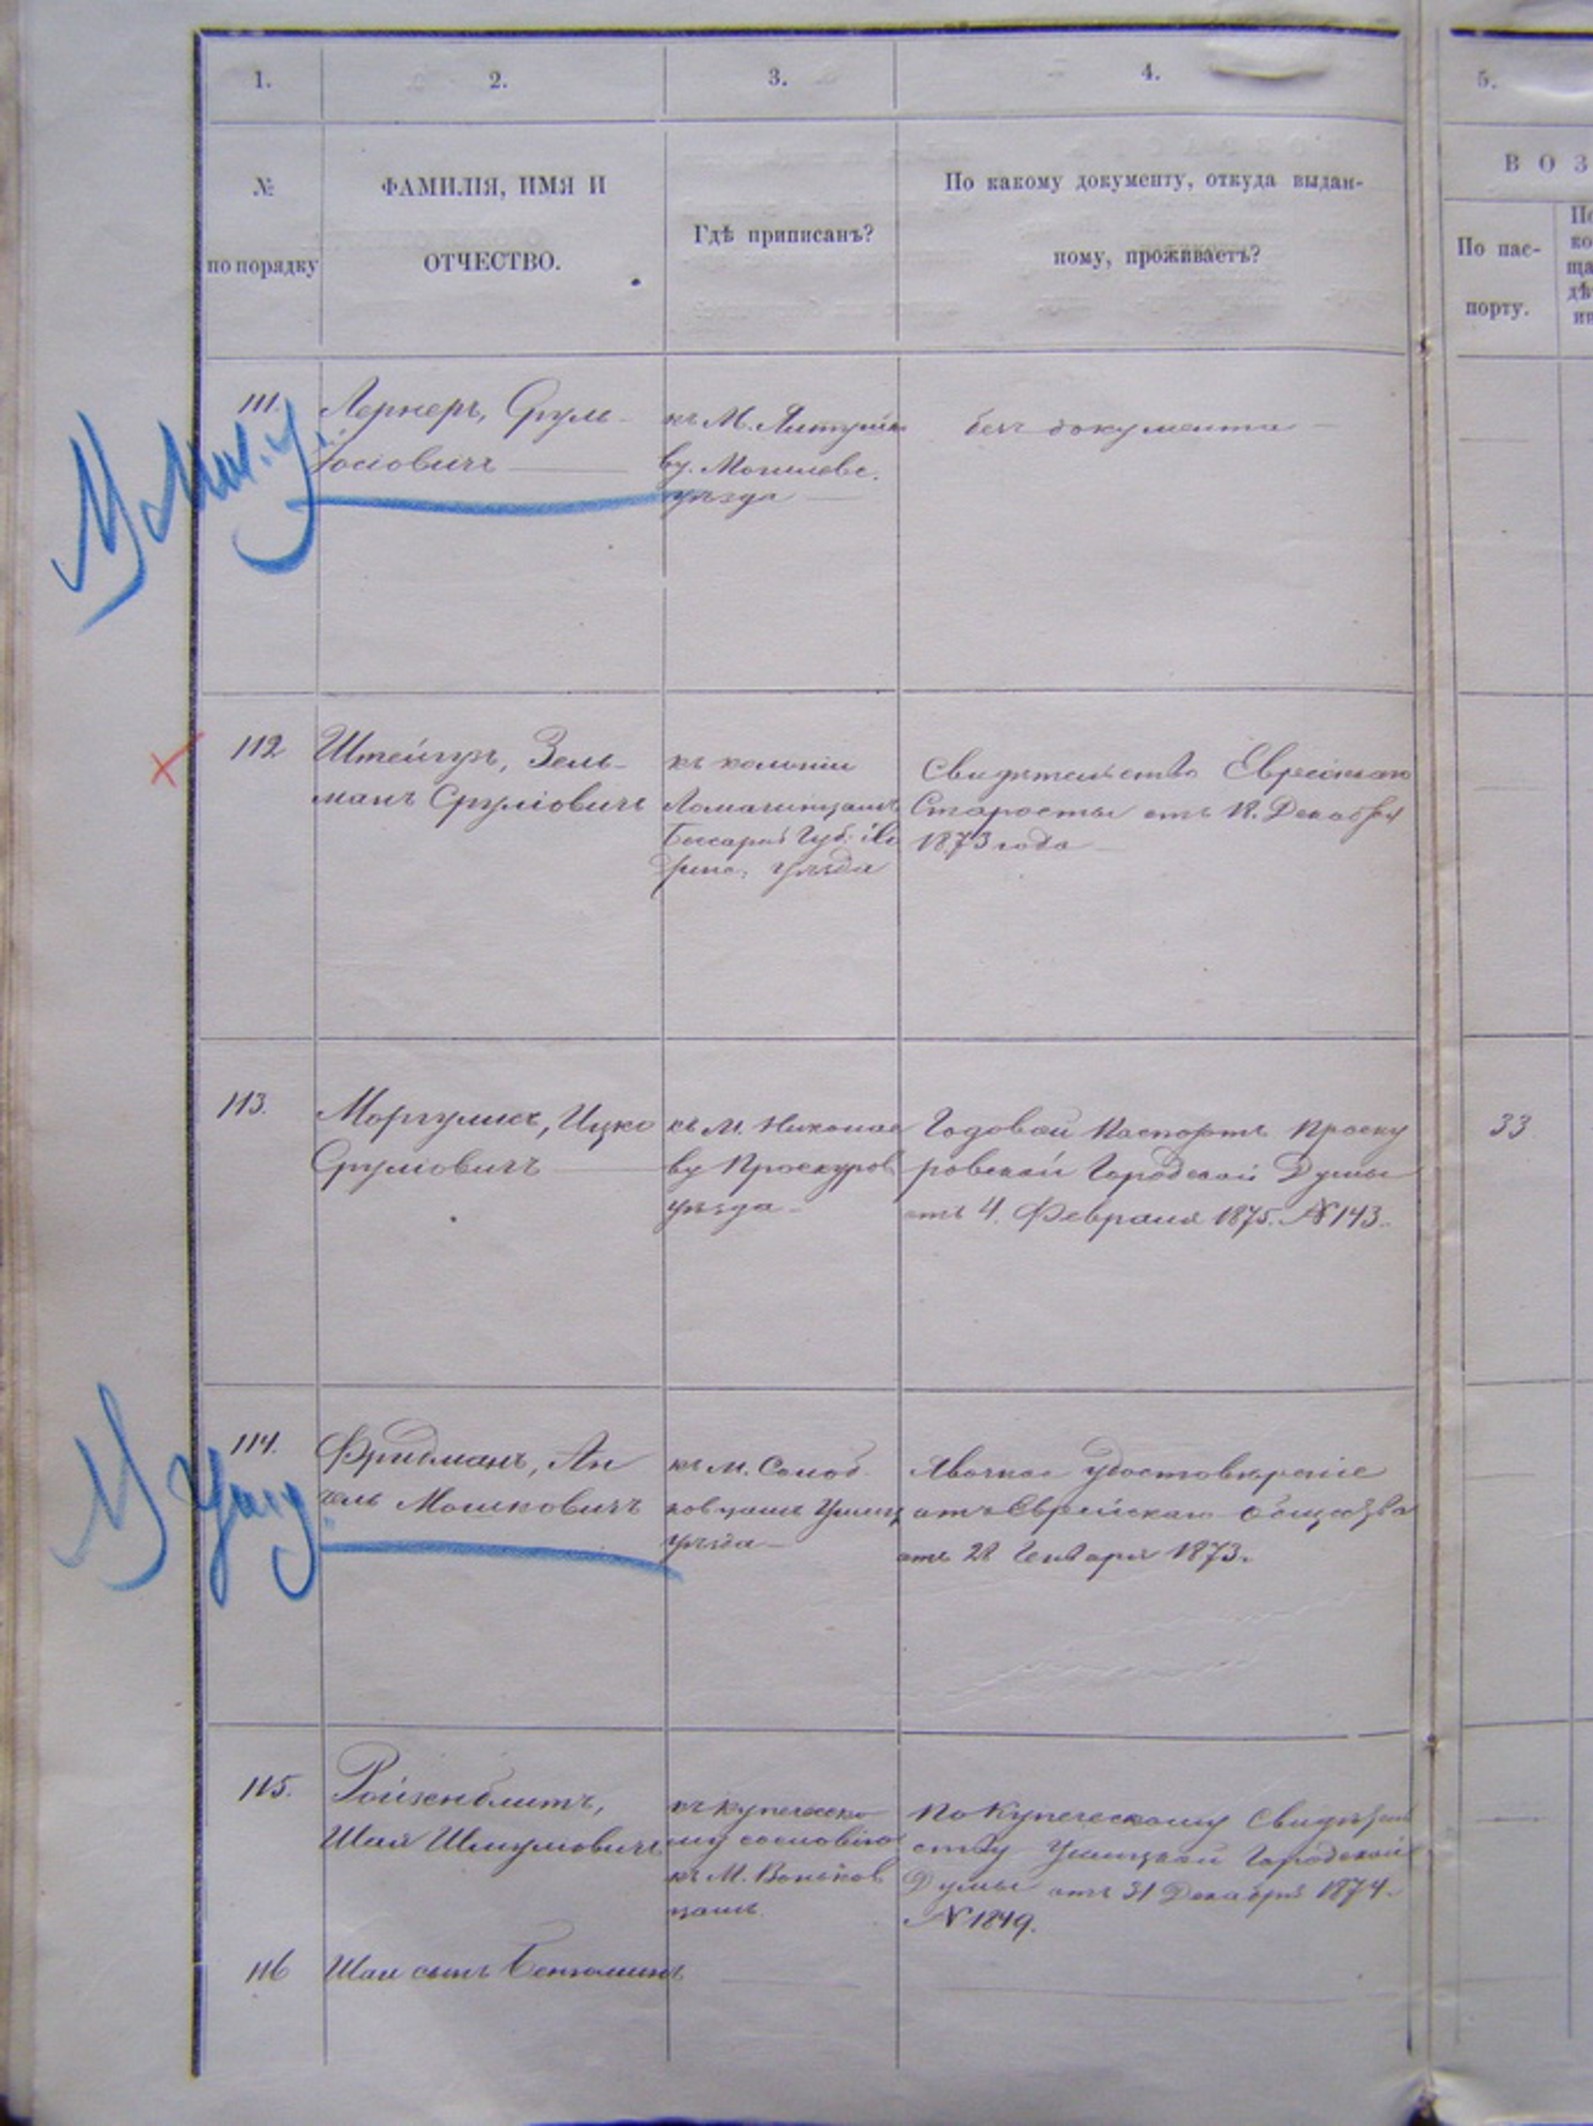 1.
2.
3.
4.
5.
№
по порядку
ФАМИЛІЯ, ИМЯ И
ОТЧЕСТВО.
Гдѣ приписанъ?
По какому документу, откуда выдан-
ному, проживаетъ?
ВОЗ
По пас-
порту.
111.
Лернеръ, Сруль
Іосіовичъ
къ М. Ялтушко
ву. Могилевс.
уѣзда
безъ документа
112
Штейнгръ, Зель-
манъ Сруліовичъ
къ колоніи
Ломачинцамъ
Бессараб Губ.
уѣзда
Свидѣтельство Еврейскаго
Старосты отъ 18. Декабря
1873 года
113.
Моргулисъ, Ицко
Сруліовичъ
къ М. Николае
ву Проскуров
уѣзда
Годовой Паспортъ Проску
ровской Городской Думы
отъ 4. Февраля 1875. № 143.
33
114.
Фридманъ, Ан
чель Мошковичъ
къ М. Солод
ковцамъ Ушиц
уѣзда
Явочное удостовѣреніе
отъ Еврейскаго Общества
отъ 28 Генваря 1873.
115.
Ройзенблитъ,
Шая Шмулiовичъ
къ купеческо
му сословію
къ М. Воньков
цамъ.
По Купеческому Свидѣтель
ству Ушицкой Городской
Думы отъ 31 Декабря 1874.
№ 1849.
116
Шаи сынъ Беньоминъ